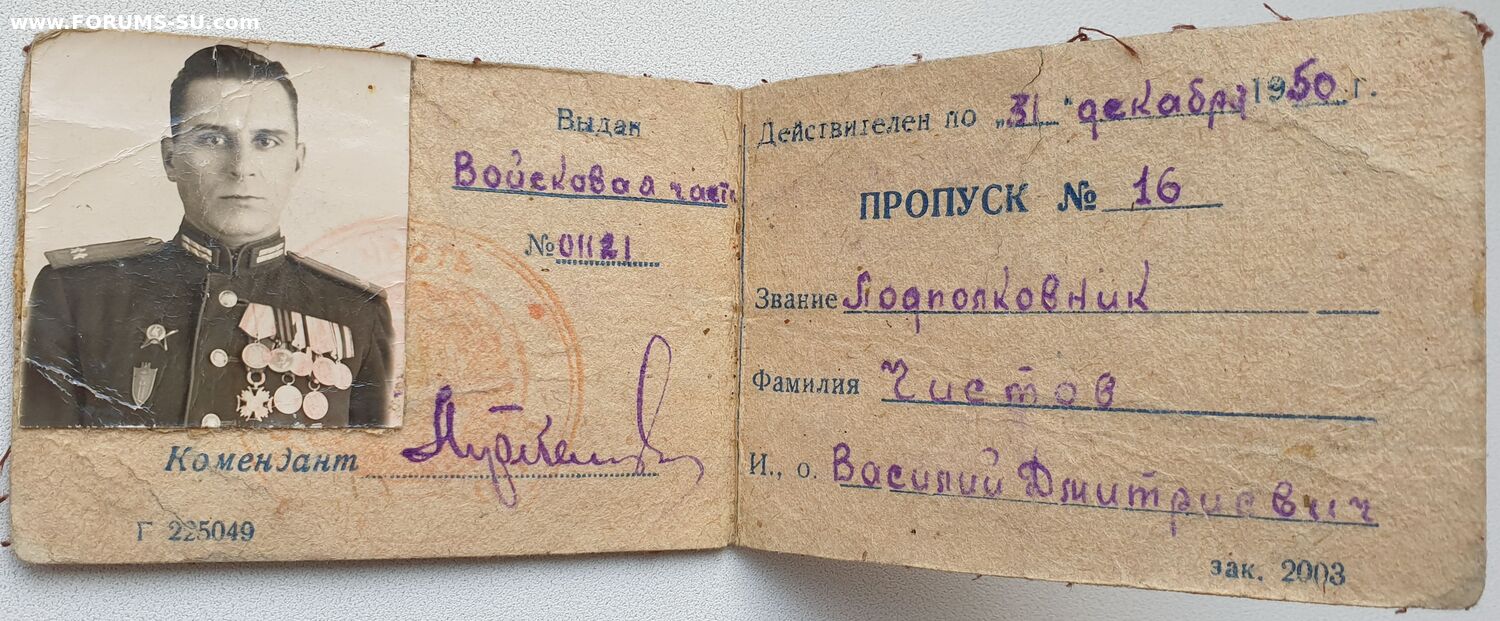 www.FORUMS-SU.com
Выдан
Войсковая часть
№ 01121
Комендант
Г 225049
Действителен по „31" декабря 1950 г.
ПРОПУСК № 16
Звание Подполковник
Фамилия Чистов
И., о. Василий Дмитриевич
зак. 2003